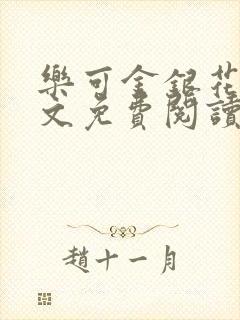 樂可金銀花
文免費閱讀
趙十一月